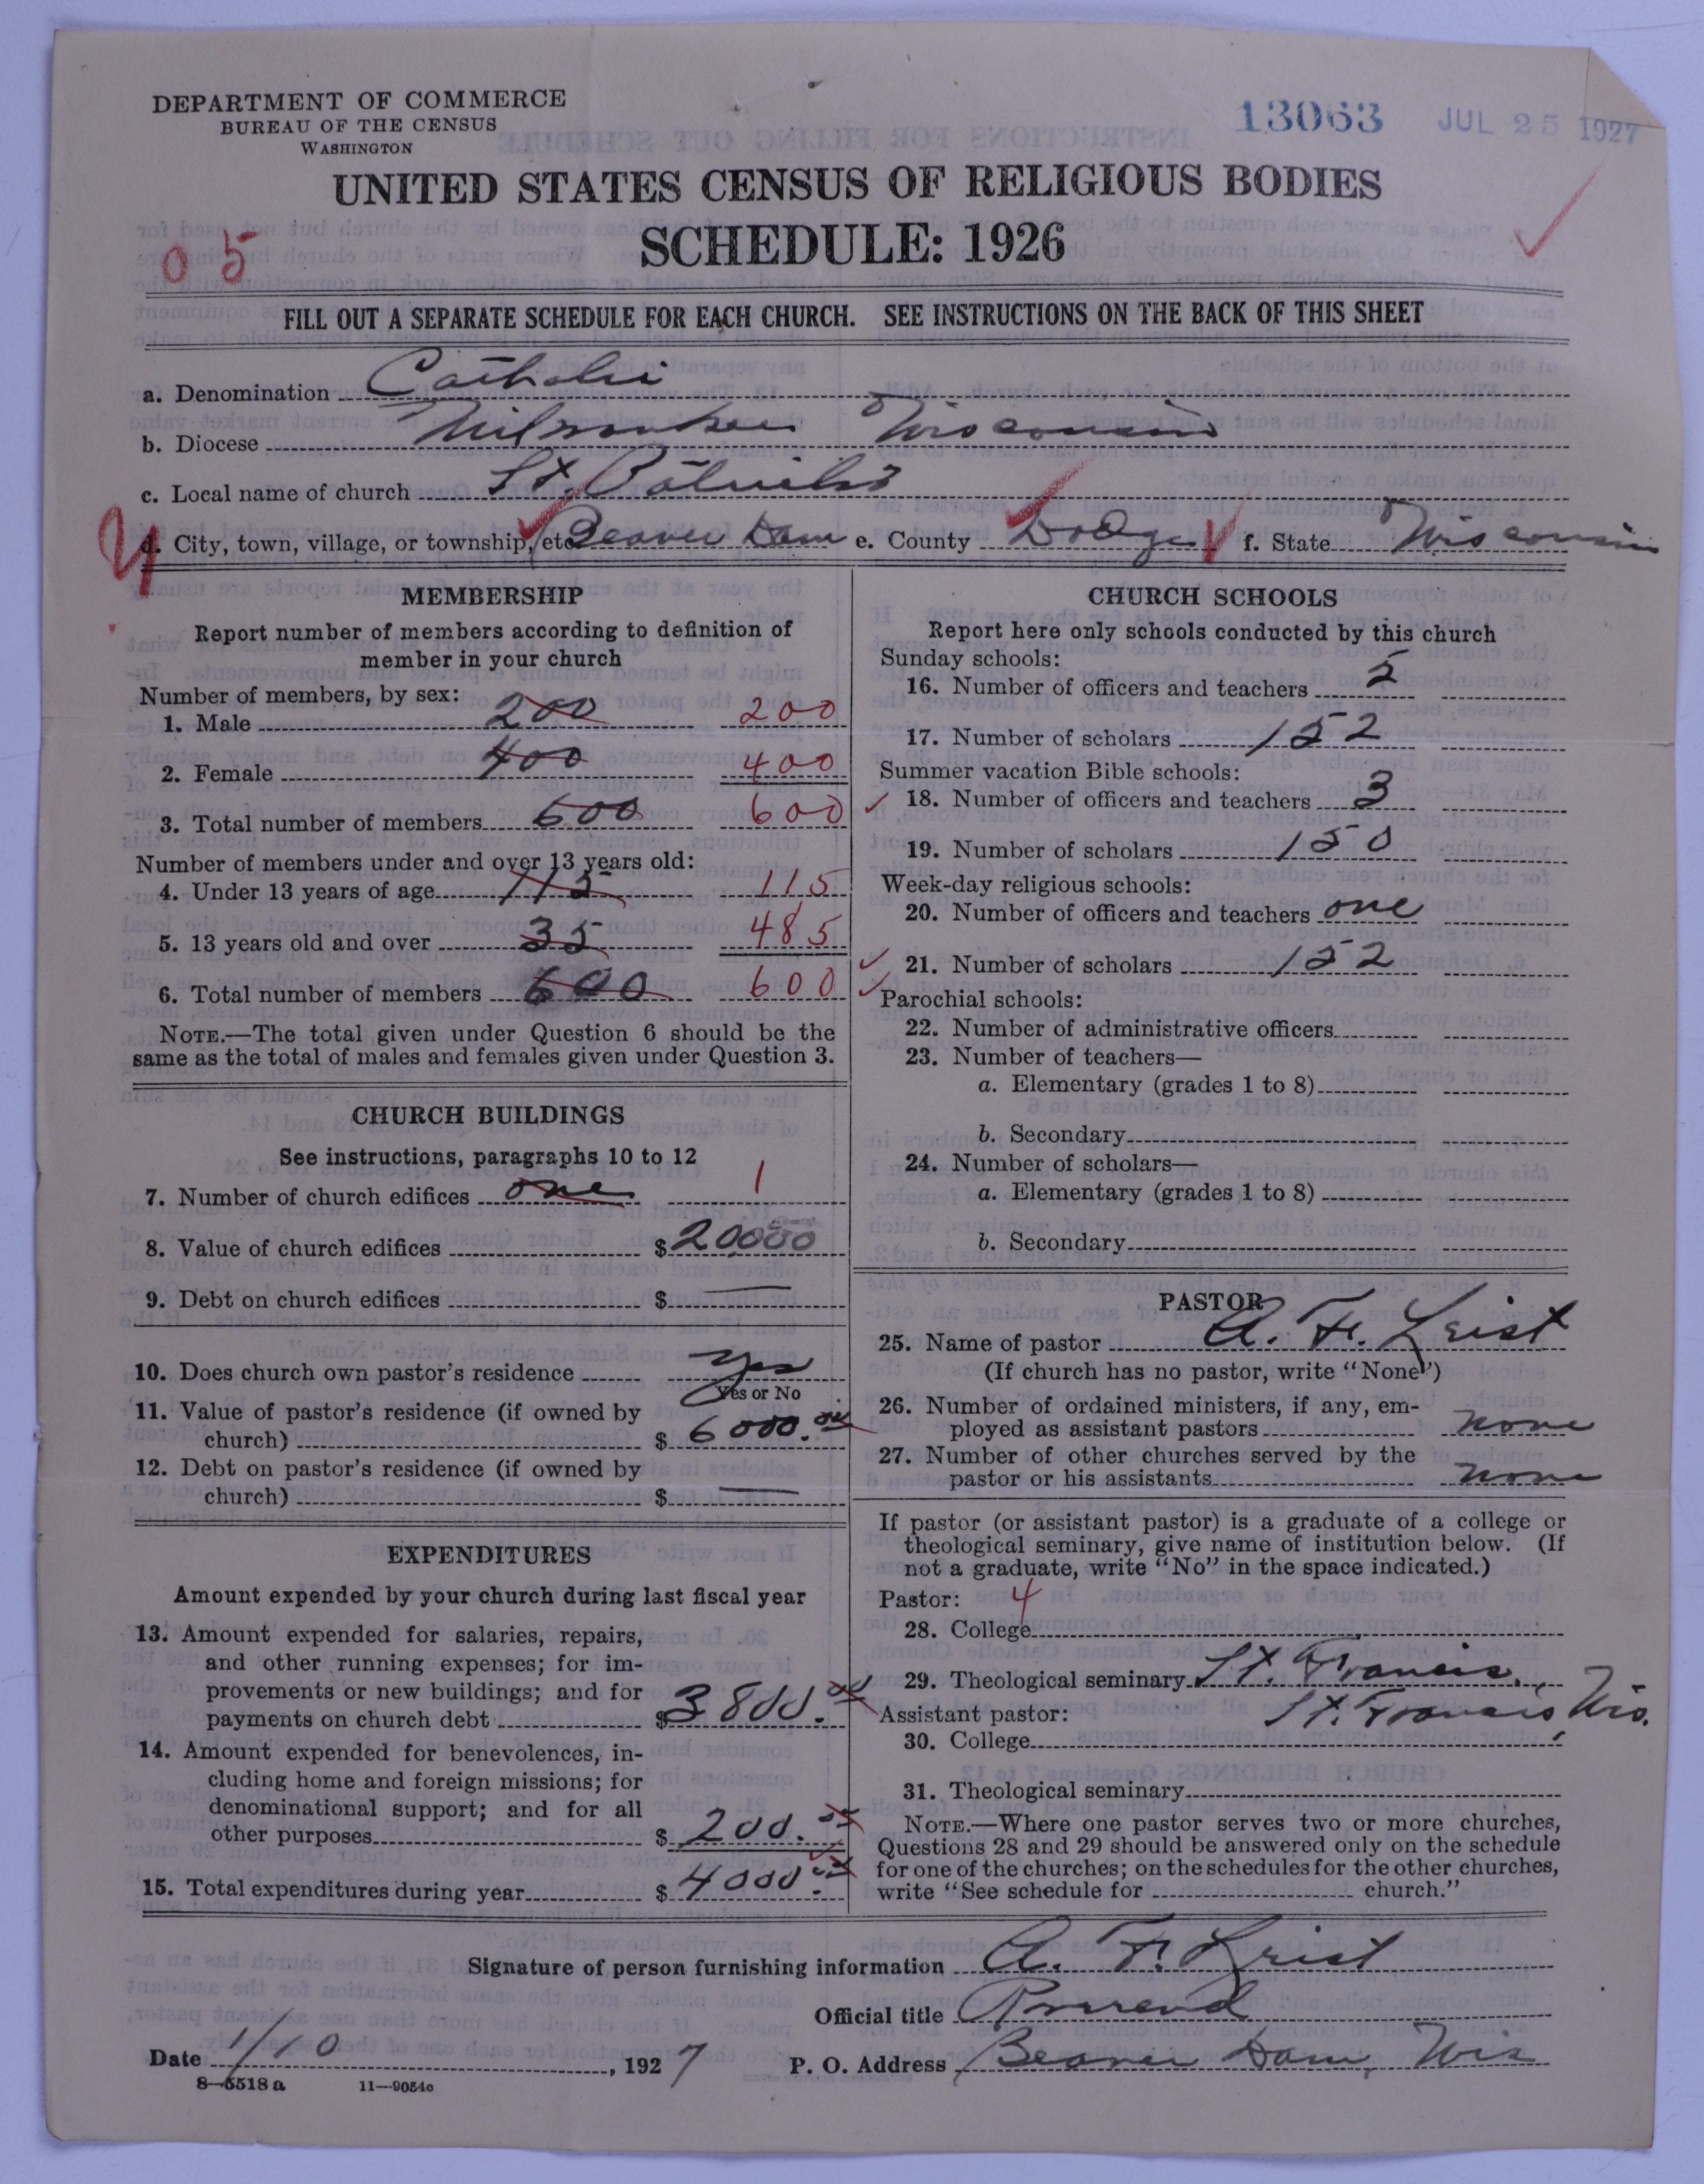 DEPARTMENT OF COMMERCE
BUREAU OF THE CENSUS
WASHINGTON
13063 JUL 25 1927
UNITED STATES CENSUS OF RELIGIOUS BODIES
SCHEDULE: 1926
05
FILL OUT A SEPARATE SCHEDULE FOR EACH CHURCH. SEE INSTRUCTIONS ON THE BACK OF THIS SHEET
a. Denomination Catholic
b. Diocese Milwaukee Wisconsin
c. Local name of church St. Patrick's
d. City, town, village, or township, etc. Beaver Dam e. County Dodge f. State Wisconsin
MEMBERSHIP
Report number of members according to definition of
member in your church
Number of members, by sex:
1. Male 200 200
2. Female 400 400
3. Total number of members 600 600
Number of members under and over 13 years old:
4. Under 13 years of age 115 115
5. 13 years old and over 35 485
6. Total number of members 600 600
NOTE.—The total given under Question 6 should be the
same as the total of males and females given under Question 3.
CHURCH BUILDINGS
See instructions, paragraphs 10 to 12
7. Number of church edifices one 1
8. Value of church edifices $ 20000
9. Debt on church edifices $ —
10. Does church own pastor's residence yes
Yes or No
11. Value of pastor's residence (if owned by
church) $ 6000.00
12. Debt on pastor's residence (if owned by
church) $ —
EXPENDITURES
Amount expended by your church during last fiscal year
13. Amount expended for salaries, repairs,
and other running expenses; for im-
provements or new buildings; and for
payments on church debt $ 3800.00
14. Amount expended for benevolences, in-
cluding home and foreign missions; for
denominational support; and for all
other purposes $ 200.00
15. Total expenditures during year $ 4000.00
CHURCH SCHOOLS
Report here only schools conducted by this church
Sunday schools:
16. Number of officers and teachers 2
17. Number of scholars 152
Summer vacation Bible schools:
18. Number of officers and teachers 3
19. Number of scholars 150
Week-day religious schools:
20. Number of officers and teachers one
21. Number of scholars 152
Parochial schools:
22. Number of administrative officers
23. Number of teachers—
a. Elementary (grades 1 to 8)
b. Secondary
24. Number of scholars—
a. Elementary (grades 1 to 8)
b. Secondary
PASTOR
25. Name of pastor A. F. Krist
(If church has no pastor, write "None")
26. Number of ordained ministers, if any, em-
ployed as assistant pastors none
27. Number of other churches served by the
pastor or his assistants none
If pastor (or assistant pastor) is a graduate of a college or
theological seminary, give name of institution below. (If
not a graduate, write "No" in the space indicated.)
Pastor: 4
28. College
29. Theological seminary St. Francis,
Assistant pastor: St. Francis, Wis.
30. College
31. Theological seminary
NOTE.—Where one pastor serves two or more churches,
Questions 28 and 29 should be answered only on the schedule
for one of the churches; on the schedules for the other churches,
write "See schedule for church."
Signature of person furnishing information A. F. Krist
Official title
Date 1/10, 1927 P. O. Address Beaver Dam, Wis
8—5518 a 11—9054c